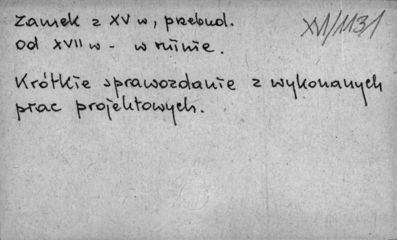 Zamek z XV w, przebud.
XVI/1131
od XVII w - w ruinie.
Krótkie sprawozdanie z wykonanych
prac projektowych.